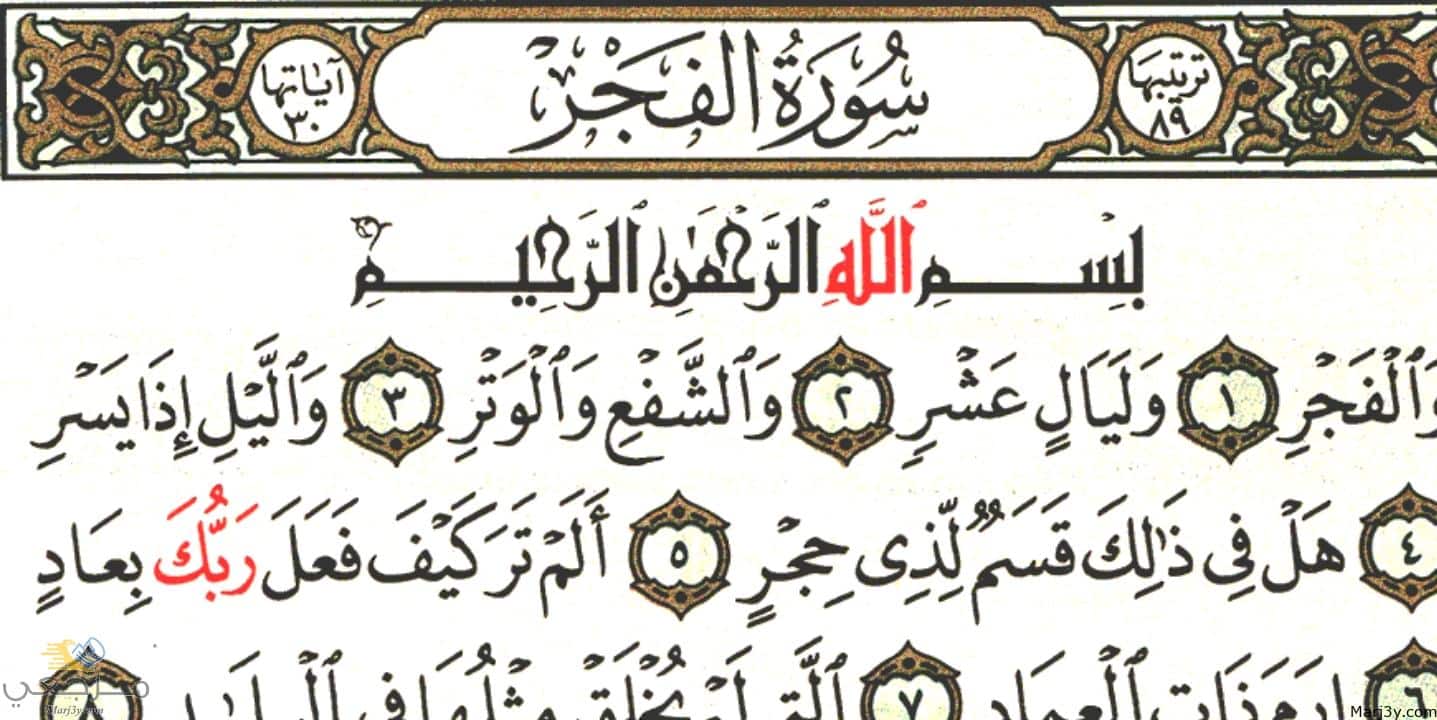 ترتيبها ٨٩ سُورَةُ الفَجْرِ آيَاتها ٣٠
بِسْمِ ٱللَّهِ ٱلرَّحْمَٰنِ ٱلرَّحِيمِ
وَٱلْفَجْرِ ١ وَلَيَالٍ عَشْرٍ ٢ وَٱلشَّفْعِ وَٱلْوَتْرِ ٣ وَٱلَّيْلِ إِذَا يَسْرِ
٤ هَلْ فِى ذَٰلِكَ قَسَمٌ لِّذِى حِجْرٍ ٥ أَلَمْ تَرَ كَيْفَ فَعَلَ رَبُّكَ بِعَادٍ
٦ إِرَمَ ذَاتِ ٱلْعِمَادِ ٧ ٱلَّتِى لَمْ يُخْلَقْ مِثْلُهَا فِى ٱلْبِلَٰدِ
مراجعي
Marj3y.com
Marj3y.com